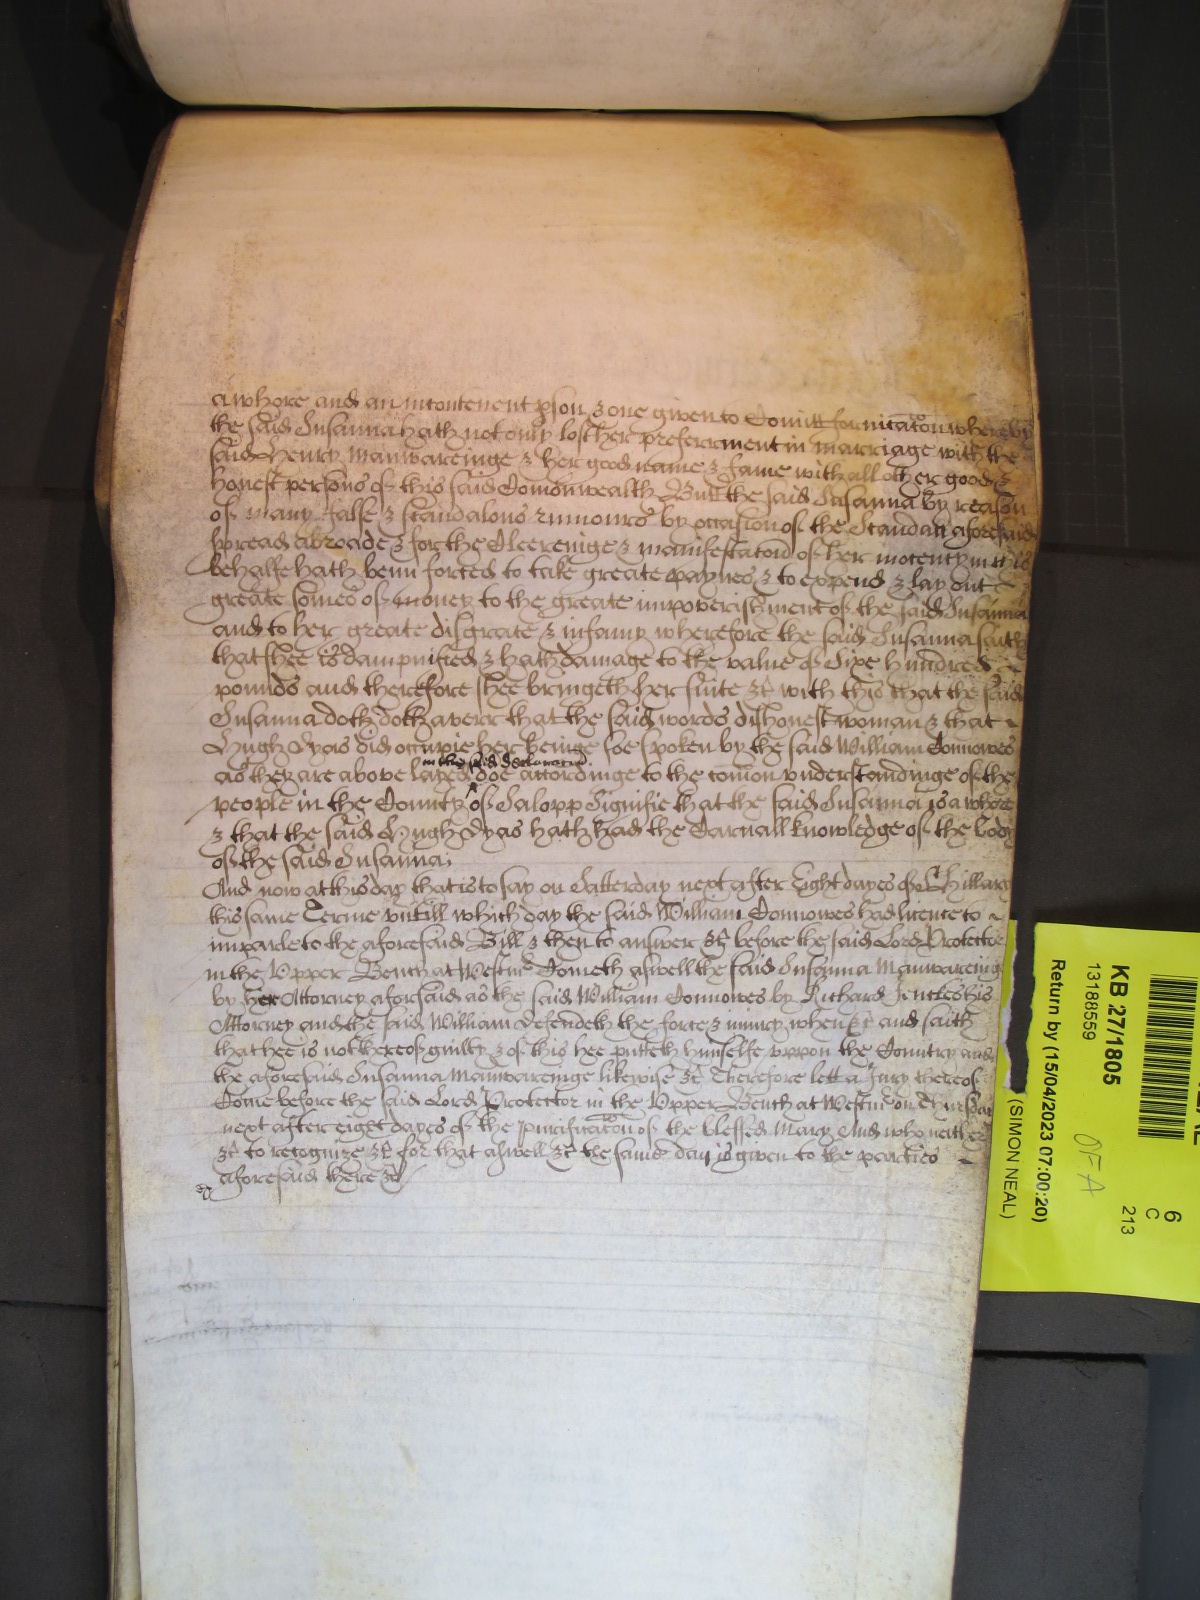 a whore and an incontenent pson & one given to Comitt fornicacon whereby
the said Susanna hath not only lost her preferrment in marriage with the
said Henry Manwareinge & her good name & fame with all other good &
honest persons of this said Comonwealth But the said Susanna by reason
of many false & scandalous rumours by occasion of the Scandall aforesaid
spread abroade & for the Cleereinge & manifestacon of her inocency in this
behalfe hath benn forced to take greate paynes & to expend & lay out
greate somes of money to the greate impoverishment of the said Susanna
and to her greate disgrace & infamy wherefore the said Susanna saith
that shee is dampnified & hath damage to the value of Sixe hundred
pounds and therefore shee bringeth her suite &c with this that the said
Susanna doth doth averr that the said words dishonest woman & that
Hugh Dyas did occupie her beinge soe spoken by the said William Connowes
as they are above layed in the said declaracon doe accordinge to the comon understandinge of the
people in the County of Salopp Signifie that the said Susanna is a whore
& that the said Hugh Dyas hath had the Carnall knowledge of the body
of the said Susanna;
And now at this day that is to say on Satterday next after Eight dayes of St Hillary
this same Terme untill which day the said William Connowes had licence to
imparle to the aforesaid Bill & then to answer &c before the said Lord Protector
in the Upper Bench at Westmr Cometh aswell the said Susanna Manwareinge
by her Attorney aforsaid as the said William Connowes by Richard his
Attorney and the said William defendeth the force & iniury when &c and saith
that hee is not thereof guilty & of this hee putteth himselfe uppon the Country and
the aforesaid Susanna Manwareinge likewise &c Therefore lett a Jury thereof
Come before the said Lord Protector in the Upper Bench at Westmr on Thursday
next after eight dayes of the purificacon of the blessed Mary And who neither
&c to recognize &c for that aswell &c the same day is given to the parties
aforesaid there &c
KB 27/1805
13188559
Return by (15/04/2023 07:00:20)
(SIMON NEAL)
OFA
6
C
213